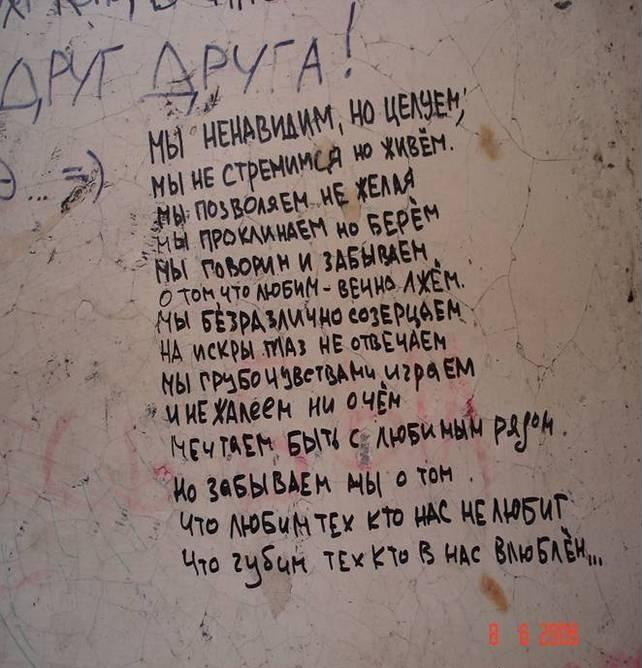 ДРУГ ДРУГА!
Э... =)
МЫ НЕНАВИДИМ, НО ЦЕЛУЕМ,
МЫ НЕ СТРЕМИМСЯ НО ЖИВЁМ.
МЫ ПОЗВОЛЯЕМ НЕ ЖЕЛАЯ
МЫ ПРОКЛИНАЕМ НО БЕРЁМ
МЫ ГОВОРИМ И ЗАБЫВАЕМ
О ТОМ, ЧТО ЛЮБИМ - ВЕЧНО ЛЖЁМ.
МЫ БЕЗРАЗЛИЧНО СОЗЕРЦАЕМ
НА ИСКРЫ ГЛАЗ НЕ ОТВЕЧАЕМ
МЫ ГРУБО ЧУВСТВАМИ ИГРАЕМ
И НЕ ЖАЛЕЕМ НИ О ЧЁМ
МЕЧТАЕМ БЫТЬ С ЛЮБИМЫМ РЯДОМ.
НО ЗАБЫВАЕМ МЫ О ТОМ.
ЧТО ЛЮБИМ ТЕХ КТО НАС НЕ ЛЮБИТ
ЧТО ГУБИМ ТЕХ КТО В НАС ВЛЮБЛЁН...
8 6 2008